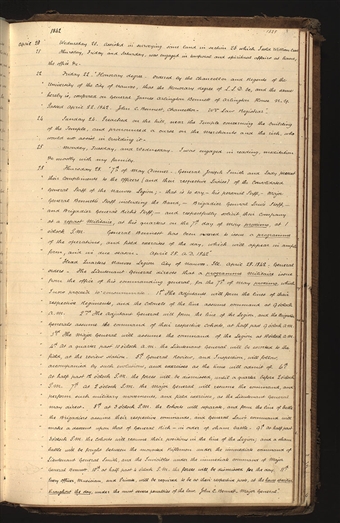 1842
1327
April 20 Wednesday 20. Assisted in surveying some land in section 25 which Judd Williams
21 Thursday, Friday and Saturday, was engaged in temporal and spiritual affairs at home,
the office &c.
22 Friday 22. "Honorary degree. Ordered by the Chancellor and Regents of the
University of the City of Nauvoo, that the Honorary degree of L.L.D. be, and the same
hereby is, conferred on General James Arlington Bennet of Arlington House N.Y.
Passed April 22. 1842. John C. Bennett, Chancellor. Wm Law Registrar."
24 Sunday 24. Preached on the hill, near the Temple, concerning the building
of the Temple, and pronounced a curse on the Merchants and the rich, who
would not assist in building it.
25 Monday, Tuesday, and Wednesday, I was engaged in reading, meditation
&c mostly with my family.
28 Thursday 28. "7th of May Dinner. General Joseph Smith and Lady present
their compliments to the Officers (and their respective Ladies) of the Consolidated
General Staff of the Nauvoo Legion; — that is to say — his personal Staff, — Major
General Bennett's Staff including the Band, — Brigadier General Law's Staff, —
and Brigadier General Rich's Staff, — and respectfully solicit their Company
at a repast Militaire, at his quarters on the 7th day of May proximo, at 1
o'clock P.M. General Bennett has been ordered to issue a programme
of the operations, and field exercises of the day, which will appear in ample
form, and in due season. April 28. A.D. 1842.
Head Quarters Nauvoo Legion City of Nauvoo Ill. April 28. 1842. General
orders. The Lieutenant General desires that a programme Militaire issue
from the office of his commanding general, for the 7th of May proximo, which
1st The Regiments will form the lines of their
respective Regiments, and the colonels of the line assume command at 9 o'clock
A.M. 2nd The Adjutant General will form the line of the Legion, and the Brigadier
Generals assume the command of their respective Cohorts, at half past 9 o'clock A.M.
3d The Major General will assume the command of the Legion at 10 o'clock A.M.
4th At a quarter past 10 o'clock A.M. the Lieutenant General will be escorted to the
field, at the review station. 5th General Review, and Inspection, will follow
accompanied by such evolutions, and exercises as the time will admit of. 6th
At half past 12 o'clock P.M. the forces will be dismissed, until a quarter before 3 o'clock
P.M. 7th At 3 o'clock P.M. the Major General will resume the command, and
perform such military movements, and field exercises, as the Lieutenant General
may direct. 8th At 3 o'clock P.M. the Cohorts will separate, and form the line of battle
the Brigadiers assume their respective commands, and General Law's command will
make a descent upon that of General Rich's in order of sham battle. 9th At half past
o'clock P.M. the Cohorts will resume their position in the line of the Legion, and a sham
battle will be fought between the mounted Riflemen under the immediate command of
Lieutenant General Smith, and the Fusiliers under the immediate command of Major
General Bennett. 10th At half past 4 o'clock P.M. the forces will be dismissed for the day. 11th
Every Officer, Musician, and Private, will be required to be at their respective post, at the
throughout the day, under the most severe penalties of the law. John C. Bennett, Major General."